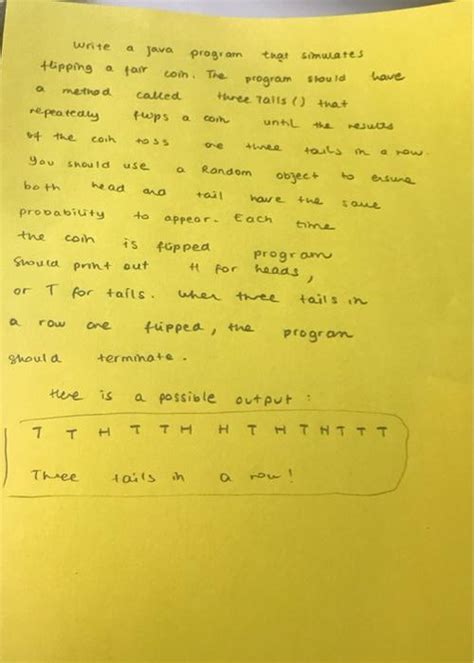 Write a java program that simulates
flipping a fair coin. The program should have
a method called threeTails() that
repeatedly flips a coin until the results
of the coin toss are three tails in a row.
You should use a Random object to ensure
both head and tail have the same
probability to appear. Each time
the coin is flipped program
should print out H for heads,
or T for tails. When three tails in
a row are flipped, the program
should terminate.
Here is a possible output:
T T H T T H H T H T H T T T
Three tails in a row!